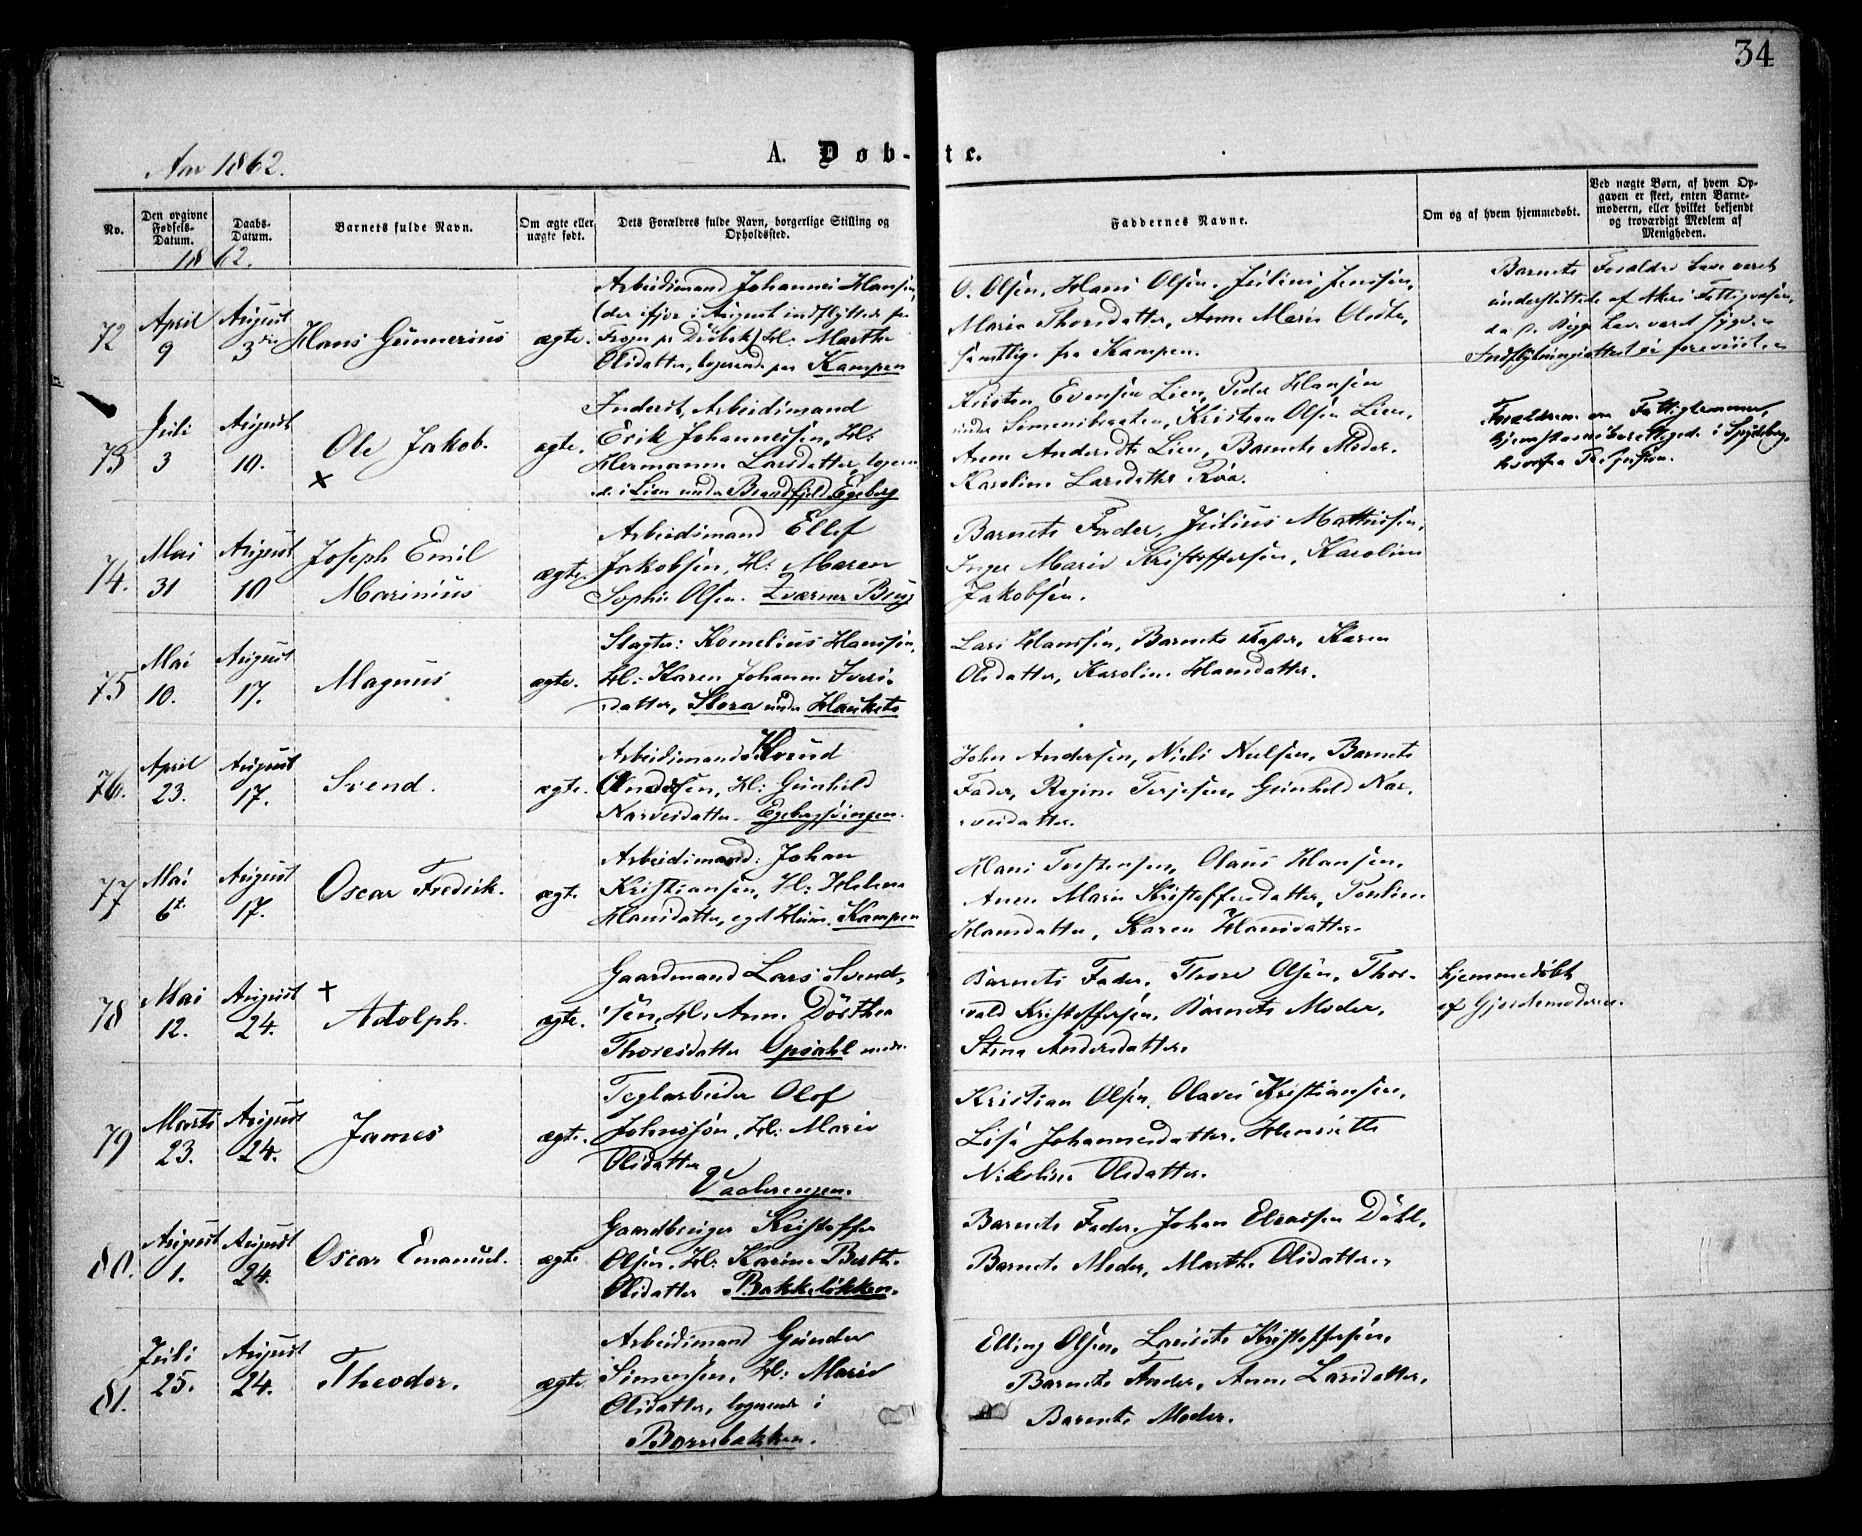 34
Aar 1862.
A. Døb- te.
No.
Den opgivne Fødsels-Datum.
Daabs-Datum.
Barnets fulde Navn.
Om ægte eller uægte født.
Dets Forældres fulde Navn, borgerlige Stilling og Opholdssted.
Faddernes Navne.
Om og af hvem hjemmedøbt.
Ved uægte Børn, af hvem Op-
gaven er skeet, enten Barne-
moderen, eller hvilket bekjendt
og troværdigt Medlem af
Menigheden.
1862.
72
April 9
August 3die
Hans Gunnerius
ægte.
Arbeidsmand Johannes Hansen,
(der ifjor i August indflyttede fra
Drøbak) H: Marthe
Olsdatter, logerende paa Kampen
O. Olsen, Hans Olsen, Julius Jenssen,
Maria Thorsdatter, Anne Marie Olsdtr,
samtlige fra Kampen.
Barnets Forældre have været
understøttede af Akers Fattigvæsen,
Indflytningsattest ei foreviist.
73
Juli 3
August 10.
Ole Jakob.
×
ægte.
Inderst, Arbeidsmand
Erik Johannessen, H:
Hermanne Larsdatter, logeren-
de i Lien under Brandfjeld Egeberg
Kristen Evensen Lien, Peder Hansen
under Simensbraaten, Kristian Olsen Lien,
Anne Andersdtr Lien, Barnets Moder.
Karoline Larsdatter
Forældrene ere Fattiglemmer,
74.
Mai 31
August 10
Joseph Emil
Marinius
ægte.
Arbeidsmand Ellef
Jakobsen, H: Maren
Sophie Olsen. Kværner Brug
Barnets Fader, Julius Mathissen,
Inger Marie Kristoffersen, Karoline
Jakobsen.
75
Mai 10.
August 17.
Magnus
ægte.
Slagter: Kornelius Hanssen,
H: Karen Johanne Syvers-
datter, Slora under Hauketo
Lars Hanssen, Barnets Fader, Karen
Olsdatter, Karoline Hansdatter.
76.
April 23.
August 17.
Svend.
ægte.
Arbeidsmand: Knud
Andersen, H: Gunhild
Narvesdatter. Egebergsvingen.
John Andersen, Niels Nielsen, Barnets
Fader, Regine Terjesen, Gunhild Nar-
vesdatter.
77
Mai 6t.
August 17.
Oscar Fredrik.
ægte
Arbeidsmand: Johan
Kristiansen, H: Helene
Hansdatter, eget Huus. Kampen
Hans Torstensen, Olaus Hansen,
Anne Marie Kristoffersdatter, Pauline
Hansdatter, Karen Hansdatter.
78
Mai 12.
August 24.
×
Adolph.
ægte.
Gaardmand Lars Svend-
sen, H: Anne Dorthea
Thoresdatter Opsahl nedre
Barnets Fader, Thore Olsen, Thor-
vald Kristoffersen, Barnets Moder,
Stina Andersdatter.
Hjemmedøbt
af Gjordemoderen.
79
Marts 23.
August 24.
James
ægte.
Teglarbeider Olof
Johnssøn, H: Marie
Olsdatter
Vaalerengen.
Kristian Olsen, Olaves Kristiansen,
Lise Johannesdatter, Henriette
Nikoline Olsdatter.
80.
August 1.
August 24.
Oscar Emanuel.
ægte
Gaardbruger Kristoffer
Olsen, H: Karine Berthe
Olsdatter Bakkeløkken.
Barnets Fader, Johan Eliassen Dahl,
Barnets Moder, Marthe Olsdatter.
81.
Juli 25.
August 24.
Theodor.
ægte
Arbeidsmand Gunder
Simensen, H: Marie
Olsdatter, logerende i
Bornebakken.
Elling Olsen, Laurits Kristoffersen,
Barnets Fader, Anne Larsdatter,
Barnets Moder.